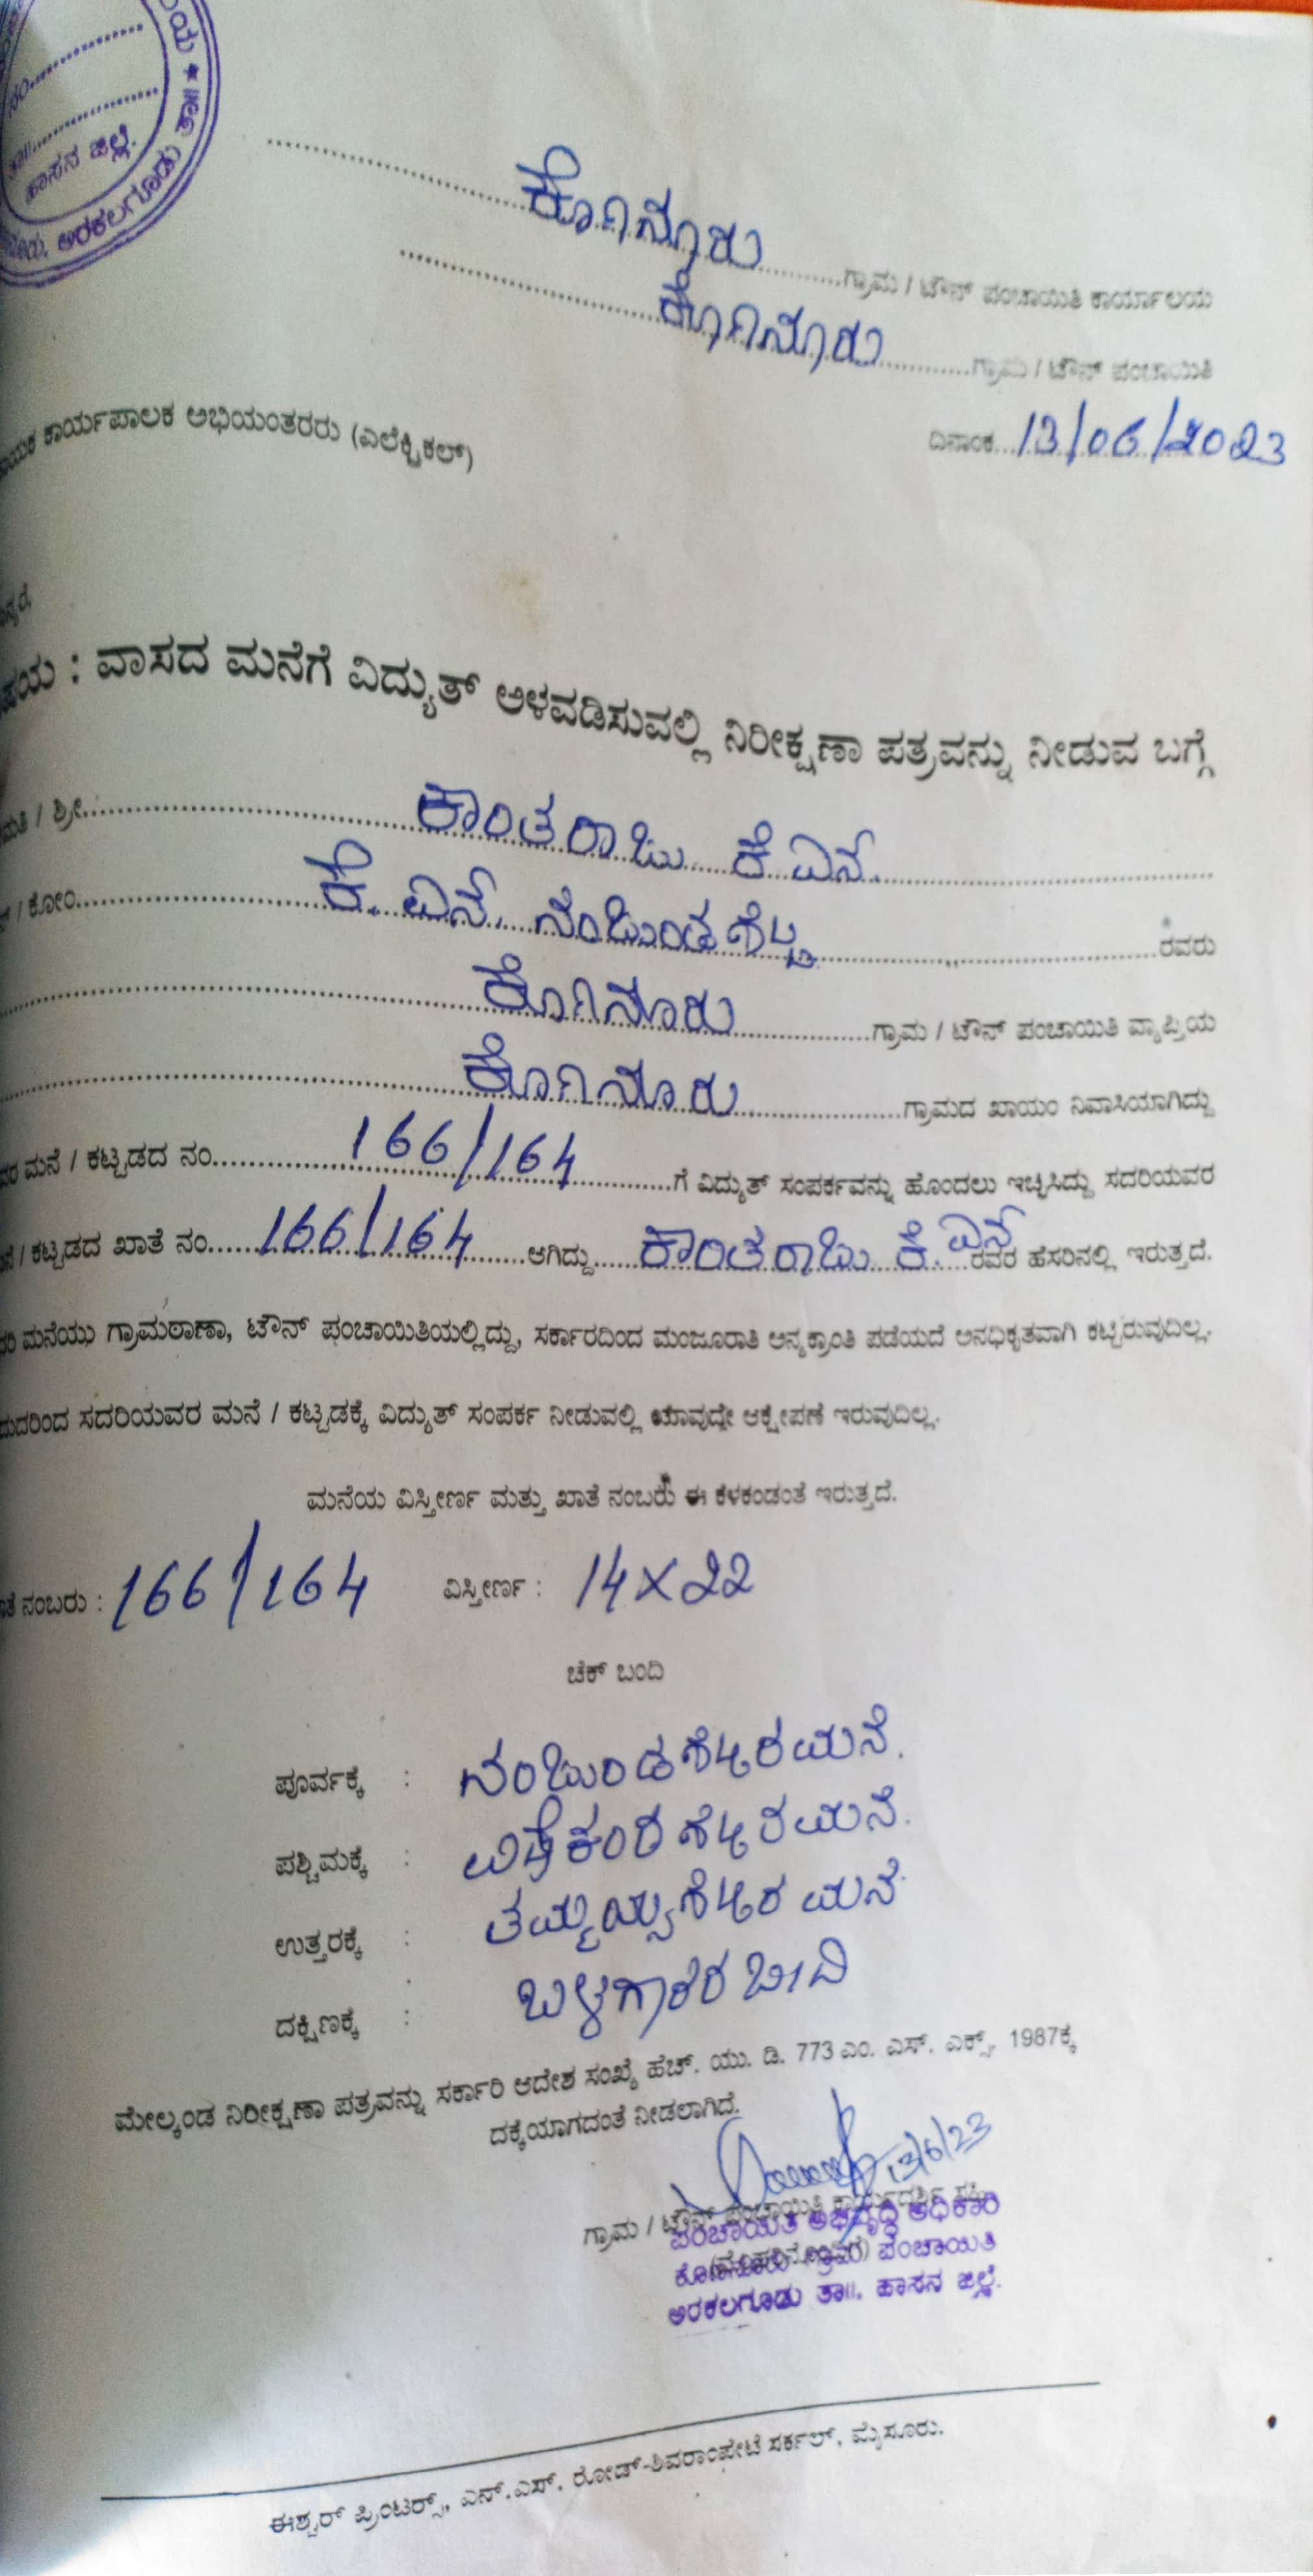 ನಂ..........
ತಾ||..........
ಹಾಸನ ಜಿಲ್ಲೆ.
ಅರಕಲಗೂಡು
ಕೊಣನೂರು ಗ್ರಾಮ / ಟೌನ್ ಪಂಚಾಯಿತಿ ಕಾರ್ಯಾಲಯ
ಕೊಣನೂರು ಗ್ರಾಮ / ಟೌನ್ ಪಂಚಾಯಿತಿ
ಕಾರ್ಯಪಾಲಕ ಅಭಿಯಂತರರು (ಎಲೆಕ್ಟ್ರಿಕಲ್)
ದಿನಾಂಕ...13/06/2023
: ವಾಸದ ಮನೆಗೆ ವಿದ್ಯುತ್ ಅಳವಡಿಸುವಲ್ಲಿ ನಿರೀಕ್ಷಣಾ ಪತ್ರವನ್ನು ನೀಡುವ ಬಗ್ಗೆ
/ ಶ್ರೀ..........ಕಾಂತರಾಜು ಕೆ ಎನ್.
/ ಕೋಂ..........ಕೆ. ಎನ್. ರವರು
ಕೊಣನೂರು ಗ್ರಾಮ / ಟೌನ್ ಪಂಚಾಯಿತಿ ವ್ಯಾಪ್ತಿಯ
ಕೊಣನೂರು ಗ್ರಾಮದ ಖಾಯಂ ನಿವಾಸಿಯಾಗಿದ್ದು
ಮನೆ / ಕಟ್ಟಡದ ನಂ..........166/164..........ಗೆ ವಿದ್ಯುತ್ ಸಂಪರ್ಕವನ್ನು ಹೊಂದಲು ಇಚ್ಛಿಸಿದ್ದು ಸದರಿಯವರ
/ ಕಟ್ಟಡದ ಖಾತೆ ನಂ......166/164......ಆಗಿದ್ದು......ಕಾಂತರಾಜು ಕೆ. ಎನ್ ರವರ ಹೆಸರಿನಲ್ಲಿ ಇರುತ್ತದೆ.
ಮನೆಯು ಗ್ರಾಮಠಾಣಾ, ಟೌನ್ ಪಂಚಾಯಿತಿಯಲ್ಲಿದ್ದು, ಸರ್ಕಾರದಿಂದ ಮಂಜೂರಾತಿ ಅನ್ಯಕ್ರಾಂತಿ ಪಡೆಯದೆ ಅನಧಿಕೃತವಾಗಿ ಕಟ್ಟಿರುವುದಿಲ್ಲ.
ಸದರಿಯವರ ಮನೆ / ಕಟ್ಟಡಕ್ಕೆ ವಿದ್ಯುತ್ ಸಂಪರ್ಕ ನೀಡುವಲ್ಲಿ ಯಾವುದೇ ಆಕ್ಷೇಪಣೆ ಇರುವುದಿಲ್ಲ.
ಮನೆಯ ವಿಸ್ತೀರ್ಣ ಮತ್ತು ಖಾತೆ ನಂಬರು ಈ ಕೆಳಕಂಡಂತೆ ಇರುತ್ತದೆ.
ನಂಬರು : 166/164 ವಿಸ್ತೀರ್ಣ : 14X22
ಚೆಕ್ ಬಂದಿ
ಪೂರ್ವಕ್ಕೆ : ನಂಜುಂಡಶೆಟ್ಟರ ಮನೆ.
ಪಶ್ಚಿಮಕ್ಕೆ : ಶೆಟ್ಟರ ಮನೆ.
ಉತ್ತರಕ್ಕೆ : ತಮ್ಮಯ್ಯಶೆಟ್ಟರ ಮನೆ
ದಕ್ಷಿಣಕ್ಕೆ : ಬಳಗಾರರ ಬೀದಿ
ಮೇಲ್ಕಂಡ ನಿರೀಕ್ಷಣಾ ಪತ್ರವನ್ನು ಸರ್ಕಾರಿ ಆದೇಶ ಸಂಖ್ಯೆ ಹೆಚ್. ಯು. ಡಿ. 773 ಎಂ. ಎಸ್. ಎಕ್ಸ್. 1987ಕ್ಕೆ
ದಕ್ಕೆಯಾಗದಂತೆ ನೀಡಲಾಗಿದೆ.
13/6/23
ಗ್ರಾಮ / ಟೌನ್ ಪಂಚಾಯಿತಿ ಕಾರ್ಯದರ್ಶಿ ಸಹಿ
ಪಂಚಾಯಿತಿ ಅಭಿವೃದ್ಧಿ ಅಧಿಕಾರಿ
ಕೊಣನೂರು ಗ್ರಾಮ ಪಂಚಾಯಿತಿ
ಅರಕಲಗೂಡು ತಾ||. ಹಾಸನ ಜಿಲ್ಲೆ.
ಈಶ್ವರ್ ಪ್ರಿಂಟರ್ಸ್, ಎನ್.ಎಸ್. ರೋಡ್-ಶಿವರಾಂಪೇಟೆ ಸರ್ಕಲ್, ಮೈಸೂರು.